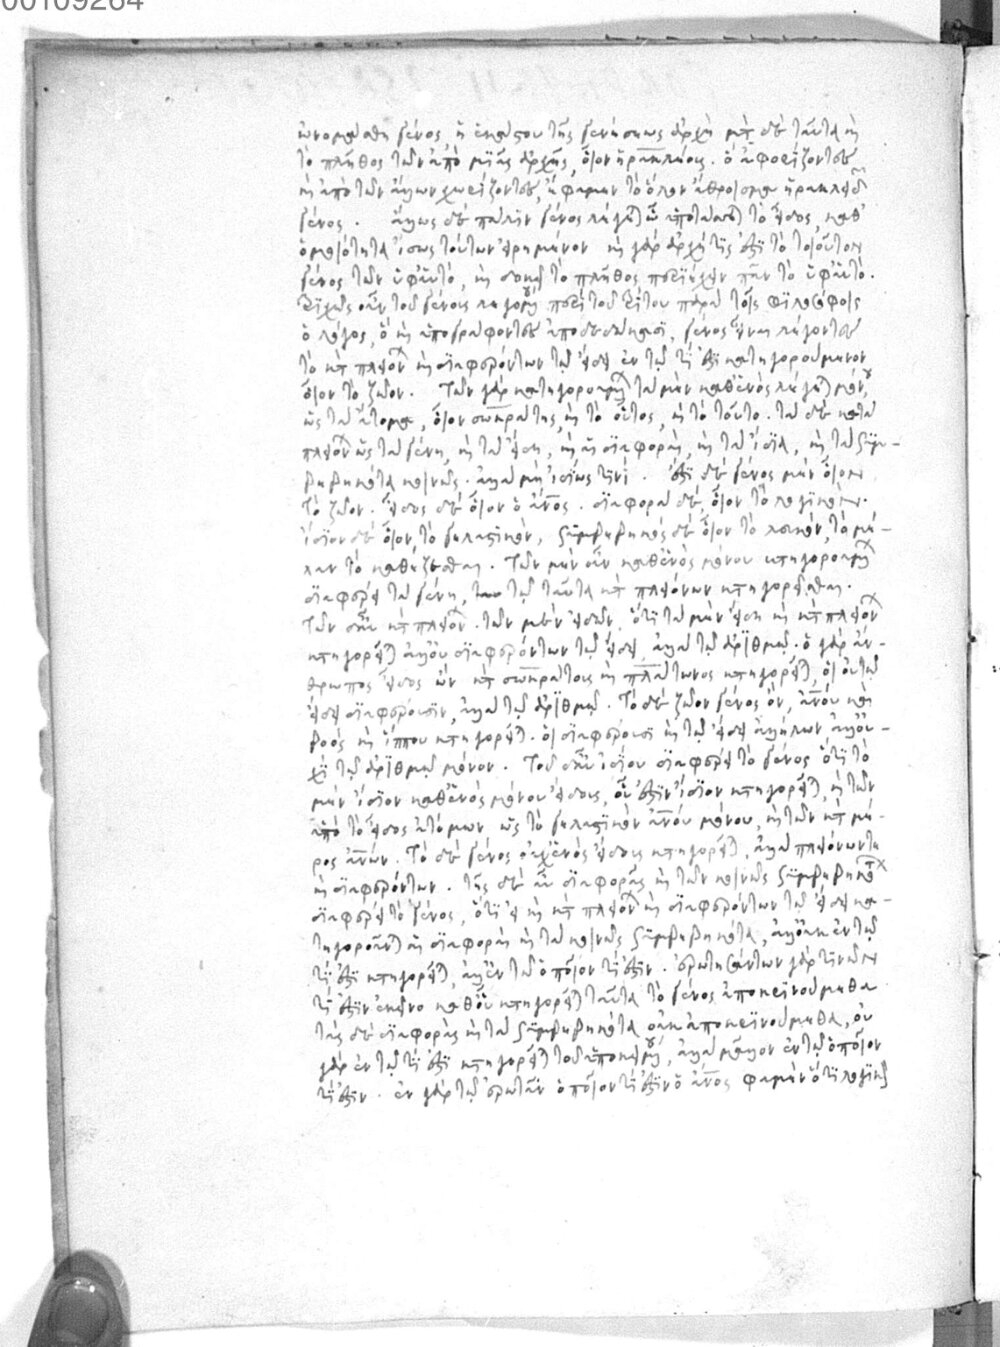 00109264
ὠνομάσθη γένος ἡ ἑκάστου τῆς γενέσεως ἀρχὴ μετὰ δὲ ταῦτα καὶ
τὸ πλῆθος τῶν ἀπὸ μιᾶς ἀρχῆς, οἷον ἡρακλέους. ὃ ἀφορίζοντες
καὶ ἀπὸ τῶν ἄλλων χωρίζοντες, ἔφαμεν τὸ ὅλον ἄθροισμα ἡρακλειδῶν
γένος. ἄλλως δὲ πάλιν γένος λέγεται ᾧ ὑποτάσσεται τὸ εἶδος, καθ'
ὁμοιότητα ἴσως τούτων εἰρημένον καὶ γὰρ ἀρχή τίς ἐστι τὸ τοιοῦτον
γένος τῶν ὑφ' ἑαυτό, καὶ δοκεῖ τὸ πλῆθος περιέχειν πᾶν τὸ ὑφ' ἑαυτό.
τριχῶς οὖν τοῦ γένους λεγομένου περὶ τοῦ τρίτου παρὰ τοῖς φιλοσόφοις
ὁ λόγος, ὃ καὶ ὑπογράφοντες ἀποδεδώκασι, γένος εἶναι λέγοντες
τὸ κατὰ πλειόνων καὶ διαφερόντων τῷ εἴδει ἐν τῷ τί ἐστι κατηγορούμενον
οἷον τὸ ζῶον. τῶν γὰρ κατηγορουμένων τὰ μὲν καθ' ἑνὸς λέγεται μόνου,
ὡς τὰ ἄτομα, οἷον σωκράτης, καὶ τὸ οὗτος, καὶ τὸ τοῦτο. τὰ δὲ κατὰ
πλειόνων ὡς τὰ γένη, καὶ τὰ εἴδη, καὶ αἱ διαφοραὶ, καὶ τὰ ἴδια, καὶ τὰ συμ-
βεβηκότα κοινῶς. ἀλλὰ μὴ ἰδίως τινί. ἔστι δὲ γένος μὲν οἷον
τὸ ζῶον. εἶδος δὲ οἷον ὁ ἄνος. διαφορὰ δὲ, οἷον τὸ λογικόν.
ἴδιον δὲ οἷον, τὸ γελαστικόν, συμβεβηκός δὲ οἷον τὸ λευκόν, τὸ μέ-
λαν τὸ καθέζεσθαι. τῶν μὲν οὖν καθ' ἑνὸς μόνου κατηγορουμένων
διαφέρει τὰ γένη, τῷ ταῦτα κατὰ πλειόνων κατηγορεῖσθαι.
τῶν δὲ αὖ κατὰ πλειόνων. τῶν μὲν εἰδῶν, ὅτι τὰ μὲν εἴδη καὶ κατὰ πλειόνων
κατηγορεῖται ἀλλ' οὐ διαφερόντων τῷ εἴδει, ἀλλὰ τῷ ἀριθμῷ. ὁ γὰρ ἄν-
θρωπος εἶδος ὢν κατὰ σωκράτους καὶ πλάτωνος κατηγορεῖται, οἳ οὐ τῷ
εἴδει διαφέρουσιν, ἀλλὰ τῷ ἀριθμῷ. τὸ δὲ ζῶον γένος ὂν, ἀνου καὶ
βοὸς καὶ ἵππου κατηγορεῖται. οἳ διαφέρουσι καὶ τῷ εἴδει ἀλλήλων, ἀλλ' οὐ-
χὶ τῷ ἀριθμῷ μόνον. τοῦ δ' αὖ ἰδίου διαφέρει τὸ γένος ὅτι τὸ
μὲν ἴδιον καθ' ἑνὸς μόνου εἴδους, οὗ ἐστιν ἴδιον κατηγορεῖται, καὶ τῶν
ὑπὸ τὸ εἶδος ἀτόμων ὡς τὸ γελαστικὸν ἀνου μόνου, καὶ τῶν κατὰ μέ-
ρος ἀνων. τὸ δὲ γένος οὐχ ἑνὸς εἴδους κατηγορεῖται, ἀλλὰ πλειόνων τε
καὶ διαφερόντων. τῆς δὲ αὖ διαφορᾶς καὶ τῶν κοινῶς συμβεβηκότων
διαφέρει τὸ γένος, ὅτι εἰ καὶ κατὰ πλειόνων καὶ διαφερόντων τῷ εἴδει κα-
τηγοροῦνται αἱ διαφοραὶ καὶ τὰ κοινῶς συμβεβηκότα, ἀλλ' οὐκ ἐν τῷ
τί ἐστι κατηγορεῖται, ἀλλ' ἐν τῷ ὁποῖον τί ἐστιν. ἐρωτησάντων γάρ τινων
τί ἐστιν ἐκεῖνο καθ' οὗ κατηγορεῖται ταῦτα τὸ γένος ἀποκρινούμεθα
τὰς δὲ διαφορὰς καὶ τὰ συμβεβηκότα οὐκ ἀποκρινούμεθα, οὐ
γὰρ ἐν τῷ τί ἐστι κατηγορεῖται τοῦ ὑποκειμένου, ἀλλὰ μᾶλλον ἐν τῷ ὁποῖον
τί ἐστιν. ἐν γὰρ τῷ ἐρωτᾶν ὁποῖον τί ἐστιν ὁ ἄνος φαμὲν ὅτι λογικὸς